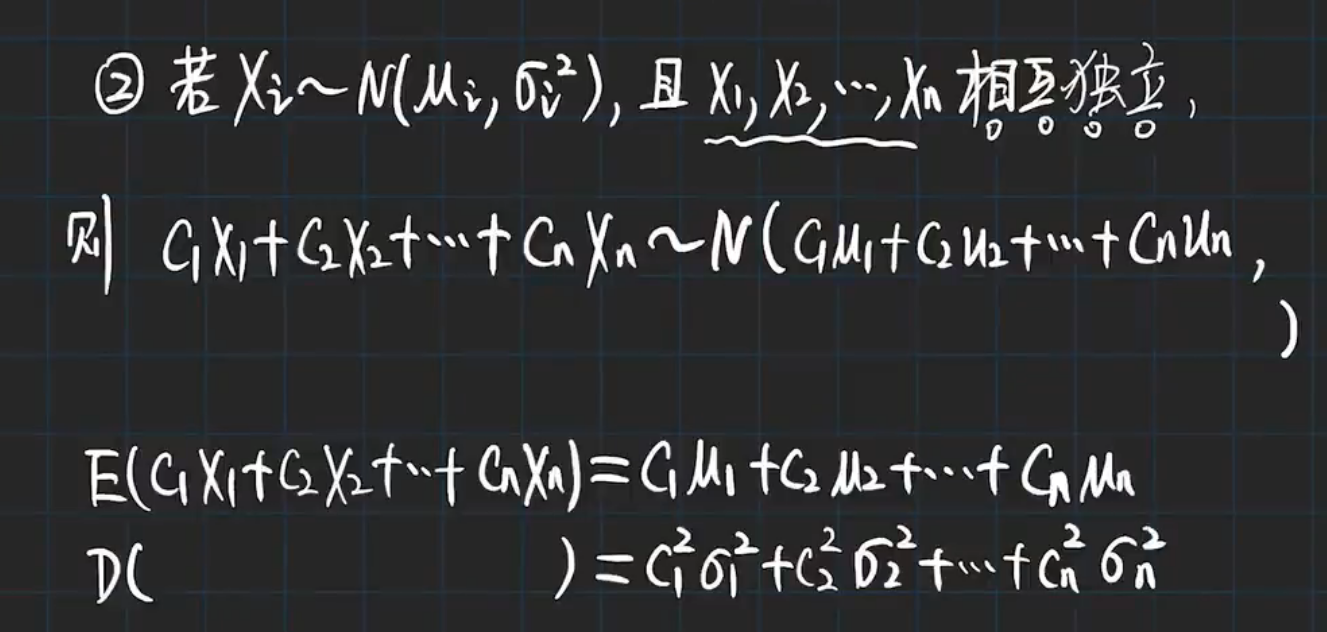 ② 若 Xᵢ~N(μᵢ, σᵢ²), 且 X₁, X₂, ⋯, Xₙ 相互独立,
则 C₁X₁+C₂X₂+⋯+CₙXₙ~N(C₁μ₁+C₂μ₂+⋯+Cₙμₙ,
)
E(C₁X₁+C₂X₂+⋯+CₙXₙ)=C₁μ₁+C₂μ₂+⋯+Cₙμₙ
D( )=C₁²σ₁²+C₂²σ₂²+⋯+Cₙ²σₙ²